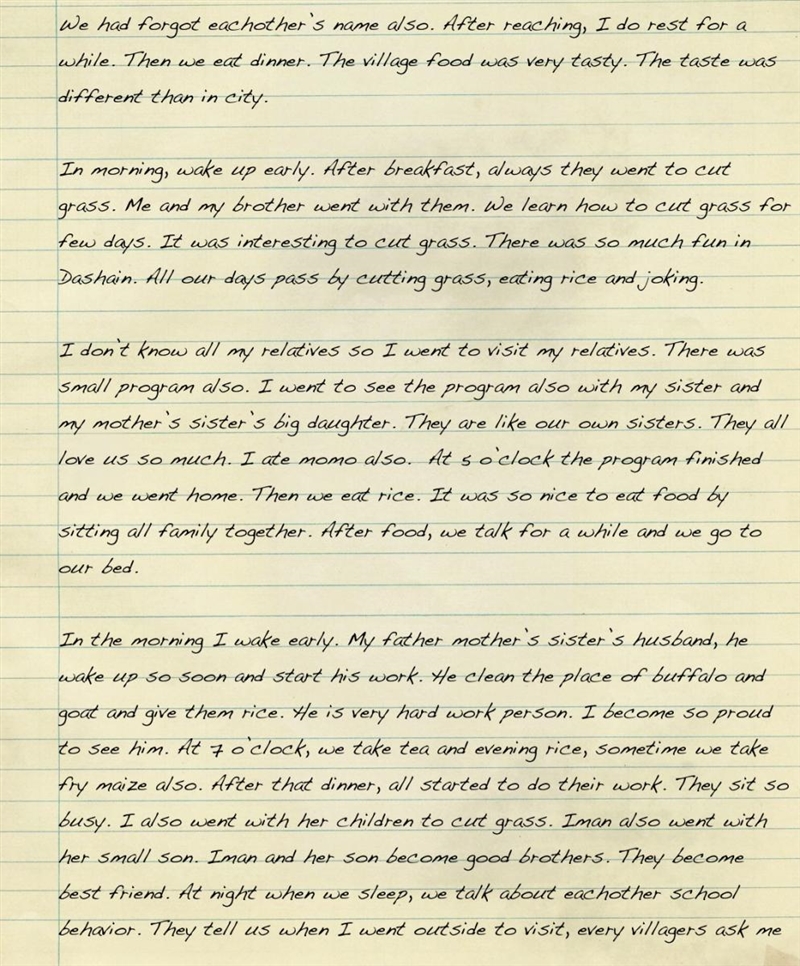 We had forgot eachother's name also. After reaching, I do rest for a
while. Then we eat dinner. The village food was very tasty. The taste was
different than in city.
In morning, wake up early. After breakfast, always they went to cut
grass. Me and my brother went with them. We learn how to cut grass for
few days. It was interesting to cut grass. There was so much fun in
Dashain. All our days pass by cutting grass, eating rice and joking.
I don't know all my relatives so I went to visit my relatives. There was
small program also. I went to see the program also with my sister and
my mother's sister's big daughter. They are like our own sisters. They all
love us so much. I ate momo also. At 5 o'clock the program finished
and we went home. Then we eat rice. It was so nice to eat food by
sitting all family together. After food, we talk for a while and we go to
our bed.
In the morning I wake early. My father mother's sister's husband, he
wake up so soon and start his work. He clean the place of buffalo and
goat and give them rice. He is very hard work person. I become so proud
to see him. At 7 o'clock, we take tea and evening rice, sometime we take
fry maize also. After that dinner, all started to do their work. They sit so
busy. I also went with her children to cut grass. Iman also went with
her small son. Iman and her son become good brothers. They become
best friend. At night when we sleep, we talk about eachother school
behavior. They tell us when I went outside to visit, every villagers ask me